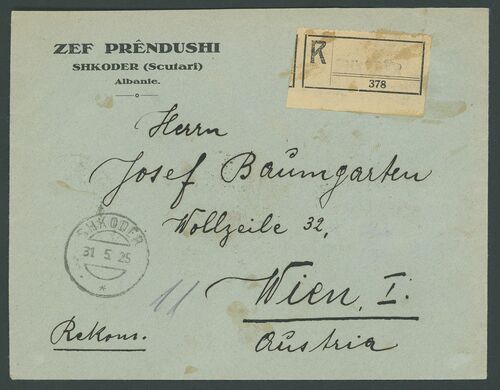 ZEF PRÊNDUSHI
SHKODER (Scutari)
Albanie.
R
378
Herrn
Josef Baumgarten
Wollzeile 32,
Wien, I.
Austria
SHKODER
31 5. 25
*
Rekom.